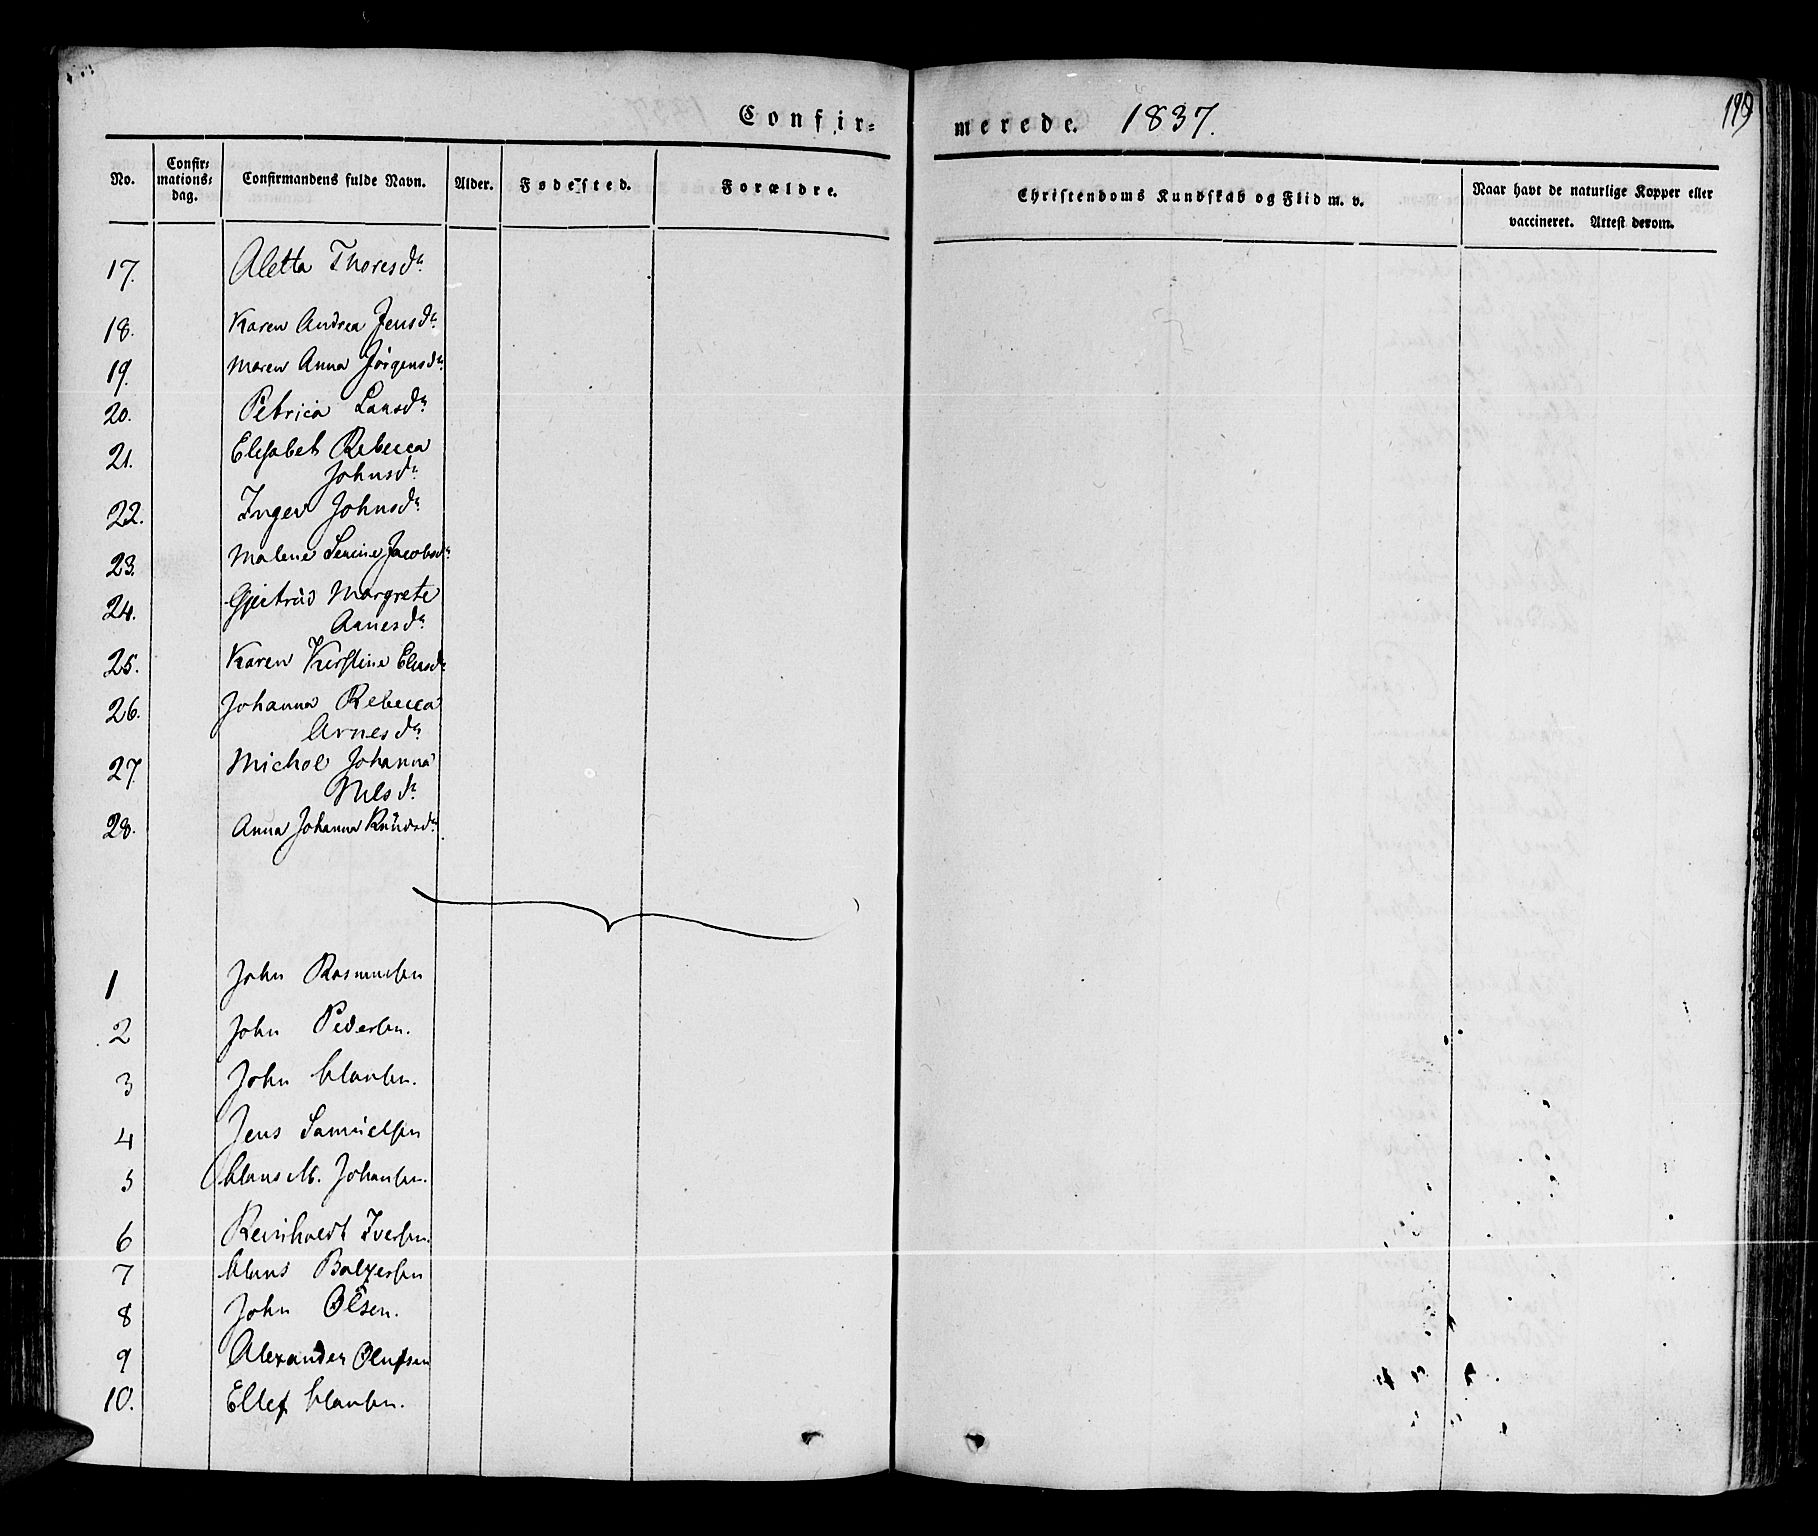 Confir=
merede. 1837.
No.
Confir=
mations=
dag.
Confirmandens fulde Navn.
Alder.
Fødested.
Forældre.
Christendoms Kundskab og Flid m. v.
Naar havt de naturlige Kopper eller
vaccineret. Attest derom.
17. Aletta Thoresdr
18. Karen Andrea Jensdr
19. Maren Anna Jörgensdr
20. Petrica Larsdr
21. Elisabet Rebecca
Johnsdr
22. Inger Johnsdr
23. Malene Serine Jacobsdr
24. Gjertrud Margrete
Aanesdr
25. Karen Kirstine Eliasdr
26. Johanna Rebecca
Arnesdr
27. Michol Johanna
Nilsdr
28. Anna Johanna Knudsdr
1 John Rasmussen
2 John Pedersen.
3 John Clausen.
4 Jens Samuelsen
5 Claus M. Johansen.
6 Reinholdt Iversen.
7 Claus Balzersen
8 John Olsen.
9 Alexander Olufsen
10. Ellef Clausen.